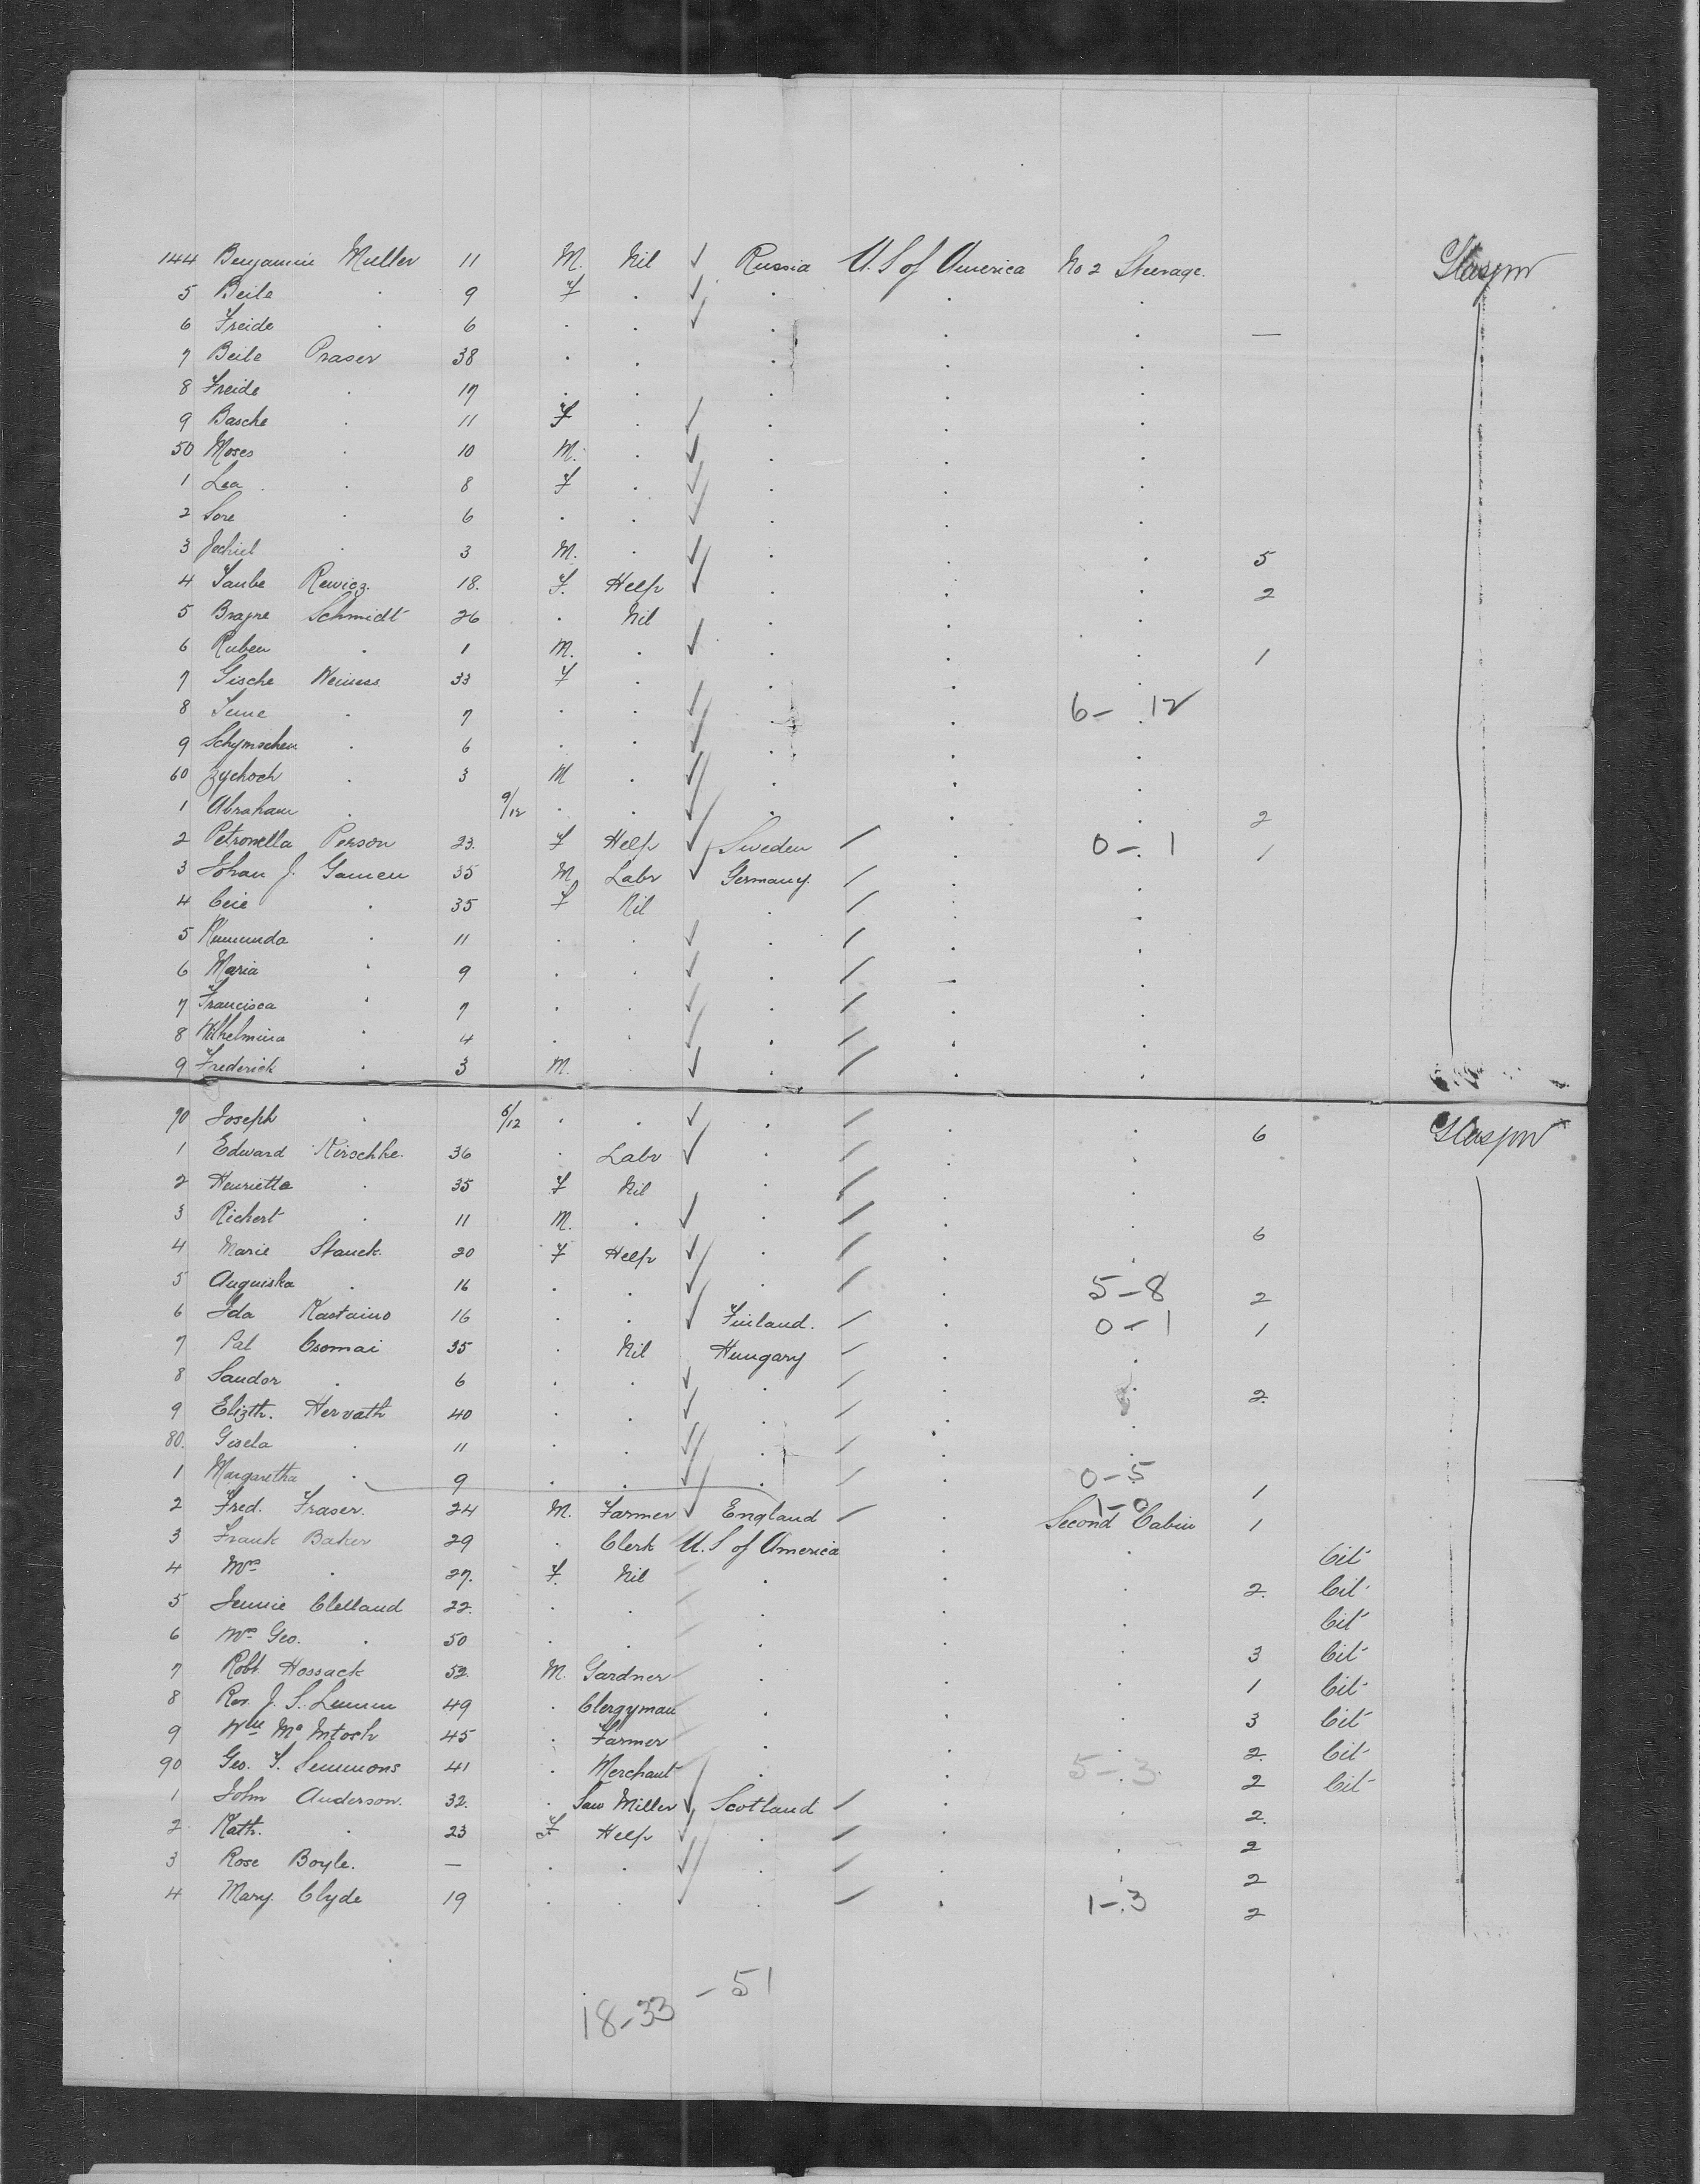 144 Benjamin Muller 11 M. Nil ✓ Russia U.S of America No 2 Steerage. Glasgow
5 Beile . 9 F . ✓ . . .
6 Freide . 6 . . ✓ . . . —
7 Beile Praser 38 . . . . .
8 Freide . 17 . . . . .
9 Basche . 11 F . ✓ . . .
50 Moses . 10 M. . ✓ . . .
1 Lea . 8 F . ✓ . . .
2 Sore . 6 . . ✓ . . .
3 Jechiel . 3 M. . ✓ . . . 5
4 Taube Rewicz. 18. F. Help ✓ . . . 2
5 Brajne Schmidt 26 . Nil . . .
6 Ruben . 1 M. . ✓ . . . 1
7 Gische 33 F . . . .
8 . 7 . . ✓ . . 6 - 12
9 . 6 . . ✓ . . .
60 Zychoch . 3 M . ✓ . . .
1 Abraham . 9/12 . . ✓ . . . 2
2 Petronella Person 23. F Help ✓ Sweden / . 0 - 1 1
3 Johan J. Gamen 35 M. Labr ✓ Germany. / . .
4 . 35 F Nil . / . .
5 . 11 . . ✓ . / . .
6 Maria . 9 . . ✓ . / . .
7 Francisca . 7 . . ✓ . / . .
8 Wilhelmina . 4 . . ✓ . / . .
9 Frederick . 3 M. ✓ . / . .
70 Joseph . 6/12 . . ✓ . / . . 6 Glasgow
1 Edward Kirschke. 36 . Labr ✓ . / . .
2 Henriette . 35 F Nil . / . .
3 Richert . 11 M. . ✓ . / . . 6
4 Marie Stanck. 20 F Help ✓ . / . .
5 Auguiska . 16 . . ✓ . / . 5 - 8 2
6 Ida Kastaino 16 . . ✓ Finland. / . 0 - 1 1
7 Pal Csomai 35 . Nil Hungary / . .
8 Sandor . 6 . . ✓ . / . . 2.
9 Elizth. Hervath 40 . . ✓ . / . .
80. Gisela . 11 . . ✓ . / . .
1 Margaretha . 9 . . ✓ . / . 0 - 5 1
2 Fred. Fraser. 24 M. Farmer ✓ England / . 1 - 0 Second Cabin 1
3 Frank Baker 29 . Clerk U.S of America . . Cit
4 Mrs . 27. F. Nil . . . 2. Cit
5 Jennie Clelland 22. . . . . . Cit
6 Mrs Geo. . 50 . . . . . 3 Cit
7 Robt. Hossack 52. M. Gardner . . . 1 Cit
8 Rev. J. S. 49 . Clergyman . . . 3 Cit
9 Wm McIntosh 45 . Farmer . . . 2. Cit
90 Geo. T. Simmons 41 . Merchant . . 5 - 3. 2 Cit
1 John Anderson. 32. . Saw Miller ✓ Scotland / . . 2.
2 Kath. . 23 F Help ✓ . / . . 2
3 Rose Boyle. — . . ✓ . / . . 2
4 Mary Clyde 19 . . ✓ . / . 1 - 3 2
18 - 33 - 51